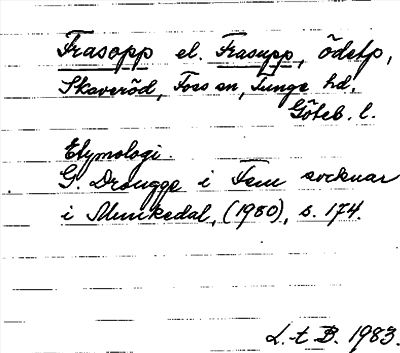 Frasopp el. Frasupp, ödetp,
Skaveröd, Foss sn, Tunge hd,
Göteb. l.
Etymologi.
G. Drougge i Fem socknar
i Munkedal, (1950), s. 174.
L. t B. 1983.